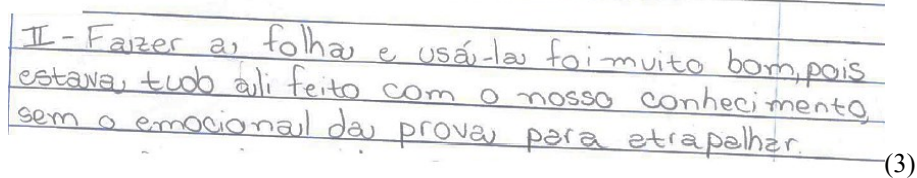 II - Fazer a folha e usá-la foi muito bom, pois
estava tudo ali feito com o nosso conhecimento,
sem o emocional da prova para atrapalhar.
(3)